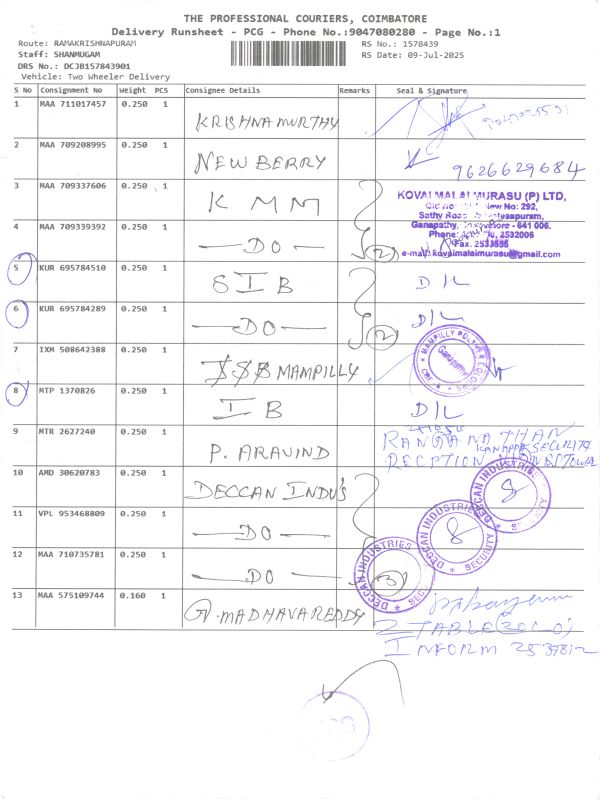 THE PROFESSIONAL COURIERS, COIMBATORE
Delivery Runsheet - PCG - Phone No.:9047080280 - Page No.:1
Route: RAMAKRISHNAPURAM
RS No.: 1578439
Staff: SHANMUGAM
RS Date: 09-Jul-2025
DRS No.: DCJB157843901
Vehicle: Two Wheeler Delivery
S No Consignment No Weight PCS Consignee Details Remarks Seal & Signature
1 MAA 711017457 0.250 1 KRISHNAMURTHY
2 MAA 709208995 0.250 1 NEW BERRY 9626629684
3 MAA 709337606 0.250 1 K M M
KOVAI MALAI MURASU (P) LTD,
New No: 292,
Sathy Road
Ganapathy, - 641 006.
Phone: 2532006
Fax.
e-mail:kovaimalaimurasu@gmail.com
4 MAA 709339392 0.250 1 —DO— 2
5 KUR 695784510 0.250 1 SIB D/L
6 KUR 695784289 0.250 1 —DO— 2 D/L
7 IXM 508642388 0.250 1 MAMPILLY
MAMPILLY Ganapathy
8 MTP 1370826 0.250 1 IB D/L
9 MTR 2627240 0.250 1 P. ARAVIND
RANGANATHAN
10 AMD 30620783 0.250 1 DECCAN INDU'S
DECCAN INDUSTRIES * SECURITY * 8
11 VPL 953468809 0.250 1 —DO—
DECCAN INDUSTRIES * SECURITY * 8
12 MAA 710735781 0.250 1 —DO— 3
DECCAN INDUSTRIES *
13 MAA 575109744 0.160 1 GV. MADHAVAREDDY
INFORM